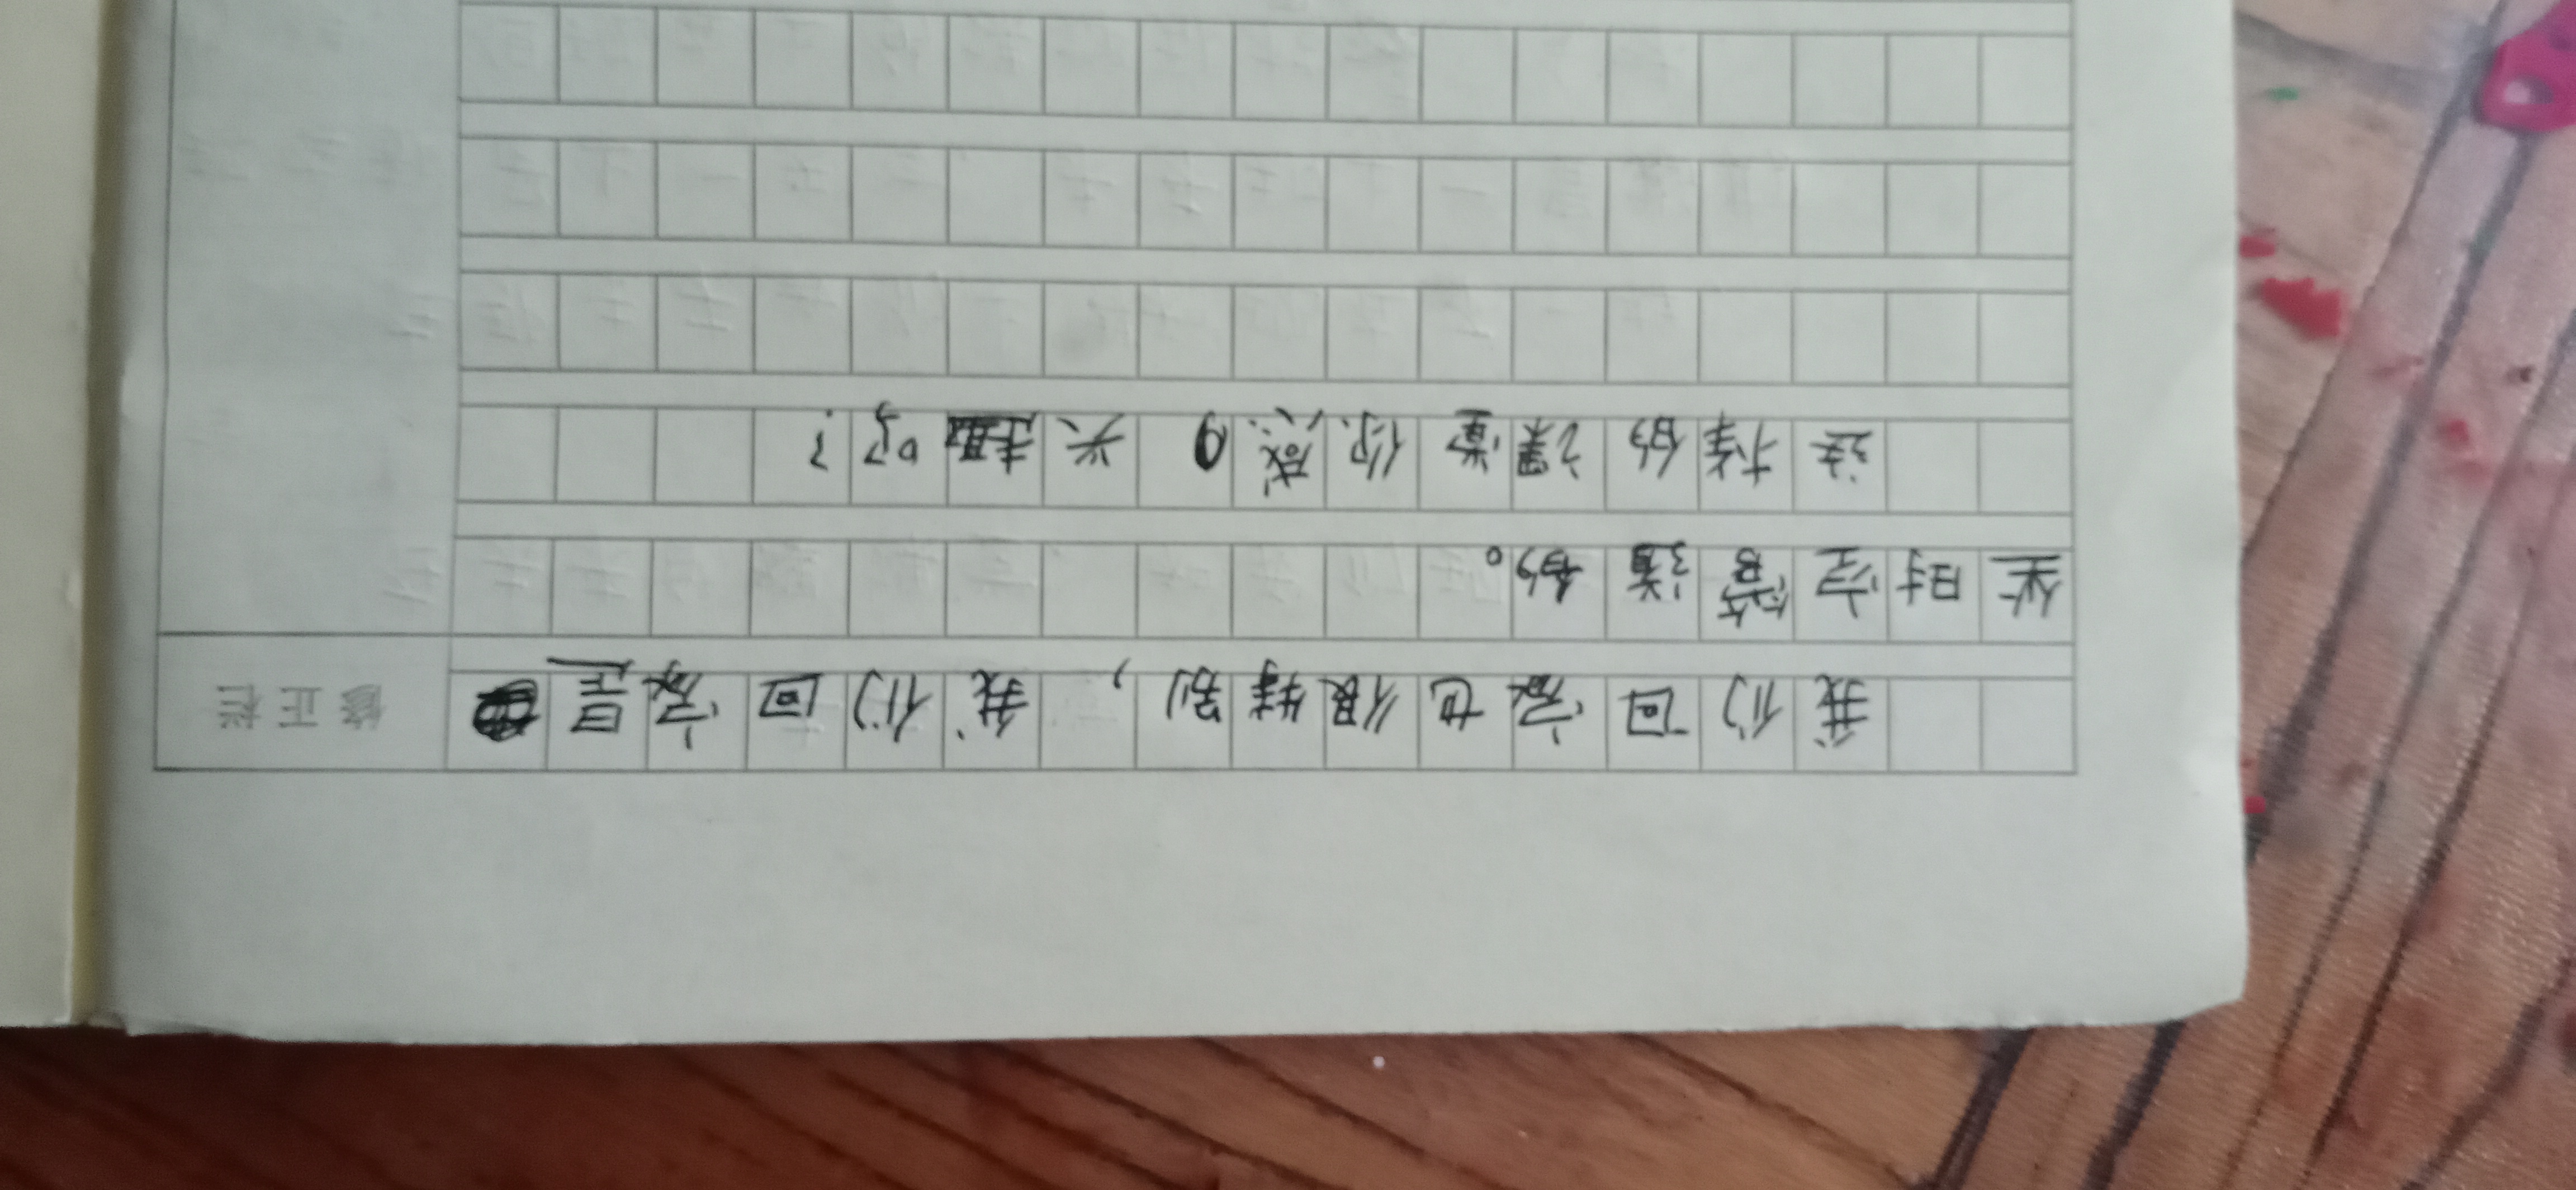 我们回家也很特别，我们回家是
修正栏
坐时空管道的。
这样的课堂你感兴趣吗？